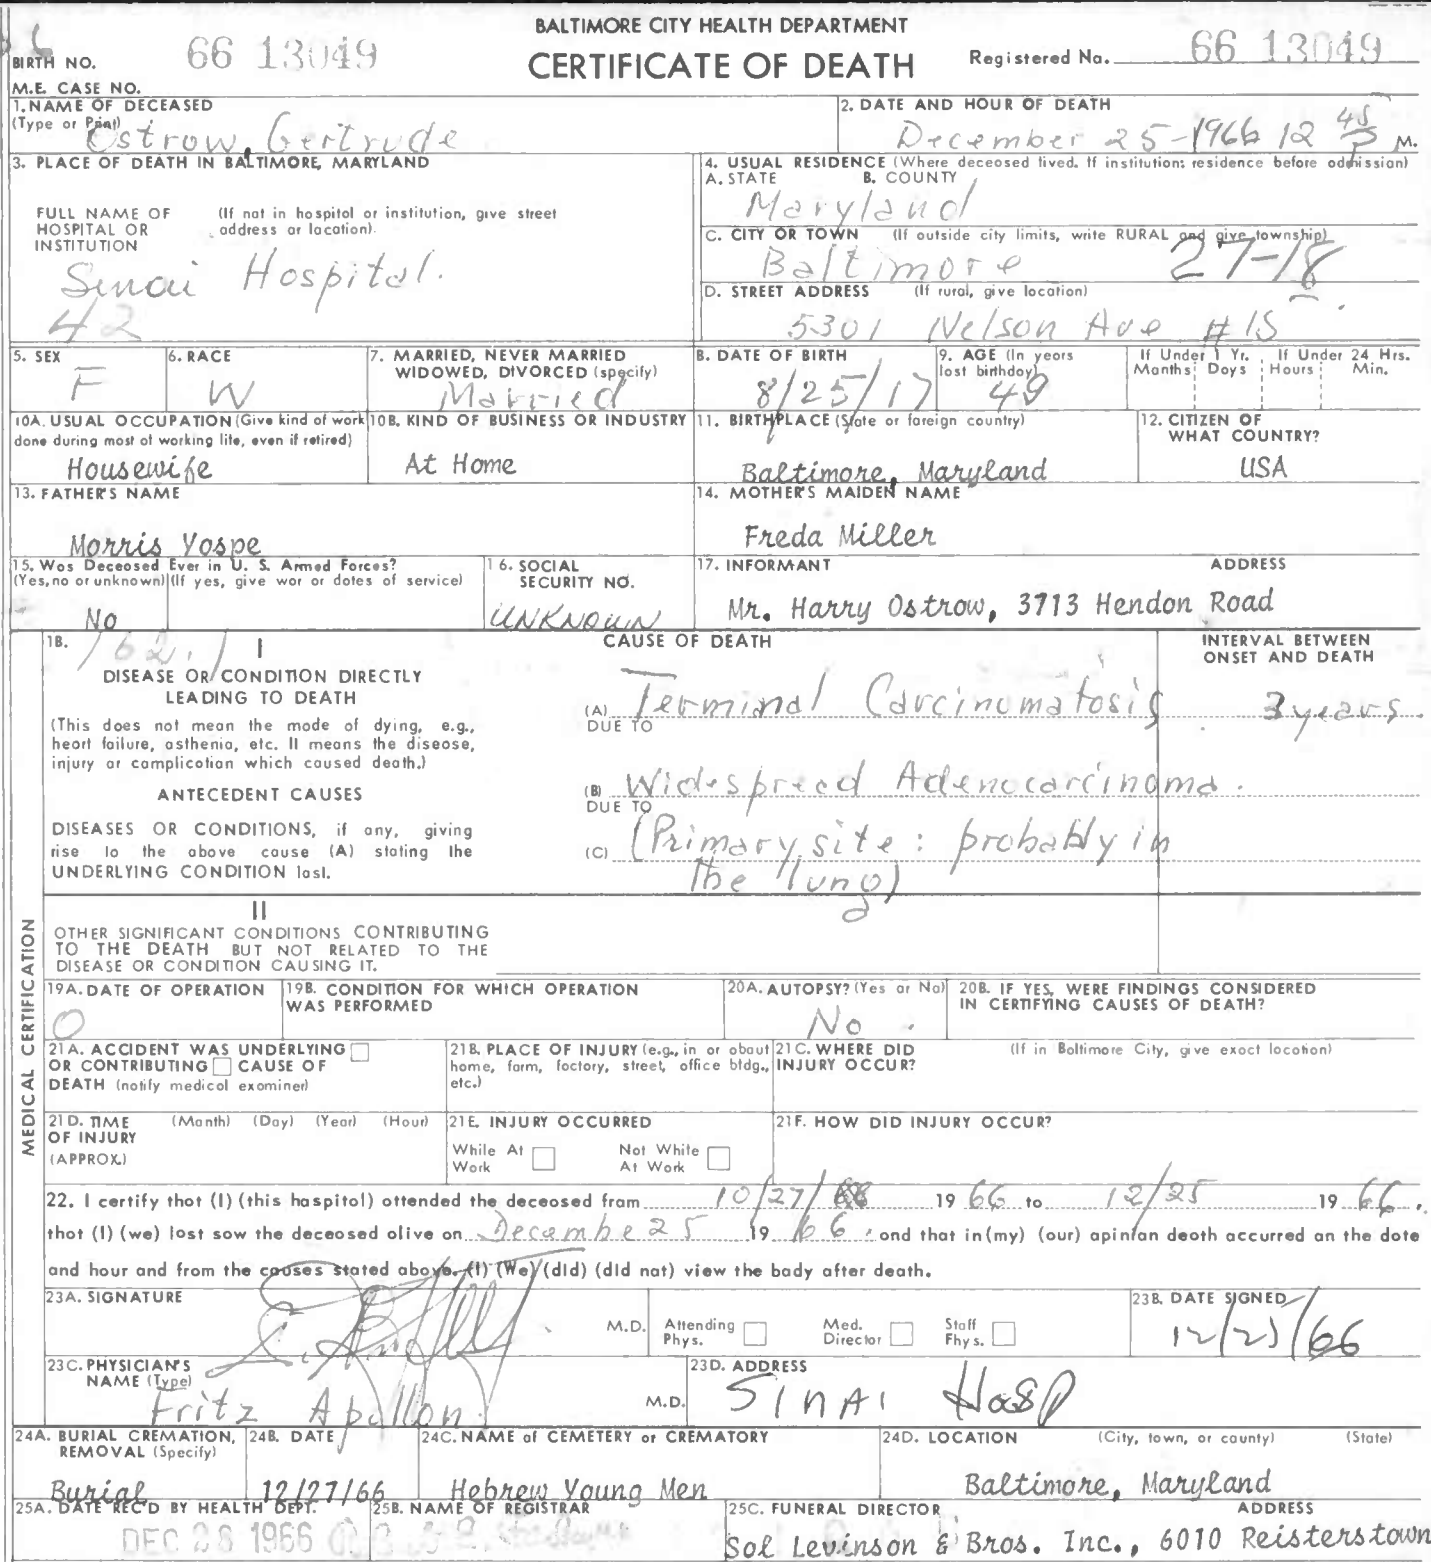 BALTIMORE CITY HEALTH DEPARTMENT
CERTIFICATE OF DEATH
BIRTH NO. 66 13049
Registered No. 66 13049
M.E. CASE NO.
1. NAME OF DECEASED
(Type or Print) Ostrow, Gertrude
2. DATE AND HOUR OF DEATH
December 25-1966 12 45 P M.
3. PLACE OF DEATH IN BALTIMORE, MARYLAND
FULL NAME OF HOSPITAL OR INSTITUTION
(If not in hospital or institution, give street address or location)
Sinai Hospital.
42
4. USUAL RESIDENCE (Where deceased lived. If institution: residence before admission)
A. STATE B. COUNTY
Maryland
C. CITY OR TOWN (If outside city limits, write RURAL and give township)
Baltimore 27-18
D. STREET ADDRESS (If rural, give location)
5301 Nelson Ave #15
5. SEX
F
6. RACE
W
7. MARRIED, NEVER MARRIED WIDOWED, DIVORCED (specify)
Married
8. DATE OF BIRTH
8/25/17
9. AGE (In years last birthday)
49
If Under 1 Yr. Months Days
If Under 24 Hrs. Hours Min.
10A. USUAL OCCUPATION (Give kind of work done during most of working life, even if retired)
Housewife
10B. KIND OF BUSINESS OR INDUSTRY
At Home
11. BIRTHPLACE (State or foreign country)
Baltimore, Maryland
12. CITIZEN OF WHAT COUNTRY?
USA
13. FATHER'S NAME
Morris Yospe
14. MOTHER'S MAIDEN NAME
Freda Miller
15. Was Deceased Ever in U. S. Armed Forces?
(Yes, no or unknown) (If yes, give war or dates of service)
No
16. SOCIAL SECURITY NO.
UNKNOWN
17. INFORMANT ADDRESS
Mr. Harry Ostrow, 3713 Hendon Road
MEDICAL CERTIFICATION
18. 162.1
I
DISEASE OR CONDITION DIRECTLY LEADING TO DEATH
(This does not mean the mode of dying, e.g., heart failure, asthenia, etc. It means the disease, injury or complication which caused death.)
ANTECEDENT CAUSES
DISEASES OR CONDITIONS, if any, giving rise to the above cause (A) stating the UNDERLYING CONDITION last.
CAUSE OF DEATH
INTERVAL BETWEEN ONSET AND DEATH
(A) Terminal Carcinomatosis 3 years
DUE TO
(B) Widespread Adenocarcinoma.
DUE TO
(C) (Primary site: probably in
the lung)
II
OTHER SIGNIFICANT CONDITIONS CONTRIBUTING TO THE DEATH BUT NOT RELATED TO THE DISEASE OR CONDITION CAUSING IT.
19A. DATE OF OPERATION
0
19B. CONDITION FOR WHICH OPERATION WAS PERFORMED
20A. AUTOPSY? (Yes or No)
No
20B. IF YES, WERE FINDINGS CONSIDERED IN CERTIFYING CAUSES OF DEATH?
21A. ACCIDENT WAS UNDERLYING OR CONTRIBUTING CAUSE OF DEATH (notify medical examiner)
21B. PLACE OF INJURY (e.g., in or about home, farm, factory, street, office bldg., etc.)
21C. WHERE DID INJURY OCCUR?
(If in Baltimore City, give exact location)
21D. TIME OF INJURY (APPROX.) (Month) (Day) (Year) (Hour)
21E. INJURY OCCURRED
While At Work Not While At Work
21F. HOW DID INJURY OCCUR?
22. I certify that (I) (this hospital) attended the deceased from 10/27/ 1966 to 12/25 1966,
that (I) (we) last saw the deceased alive on Decembe 25 1966, and that in (my) (our) opinion death occurred on the date
and hour and from the causes stated above. (I) (We) (did) (did not) view the body after death.
23A. SIGNATURE
M.D. Attending Phys. Med. Director Staff Phys.
23B. DATE SIGNED
12/25/66
23C. PHYSICIAN'S NAME (Type)
Fritz Apollon M.D.
23D. ADDRESS
SINAI Hosp
24A. BURIAL CREMATION, REMOVAL (Specify)
Burial
24B. DATE
12/27/66
24C. NAME of CEMETERY or CREMATORY
Hebrew Young Men
24D. LOCATION (City, town, or county) (State)
Baltimore, Maryland
25A. DATE REC'D BY HEALTH DEPT.
DEC 28 1966
25B. NAME OF REGISTRAR
25C. FUNERAL DIRECTOR ADDRESS
Sol Levinson & Bros. Inc., 6010 Reisterstown